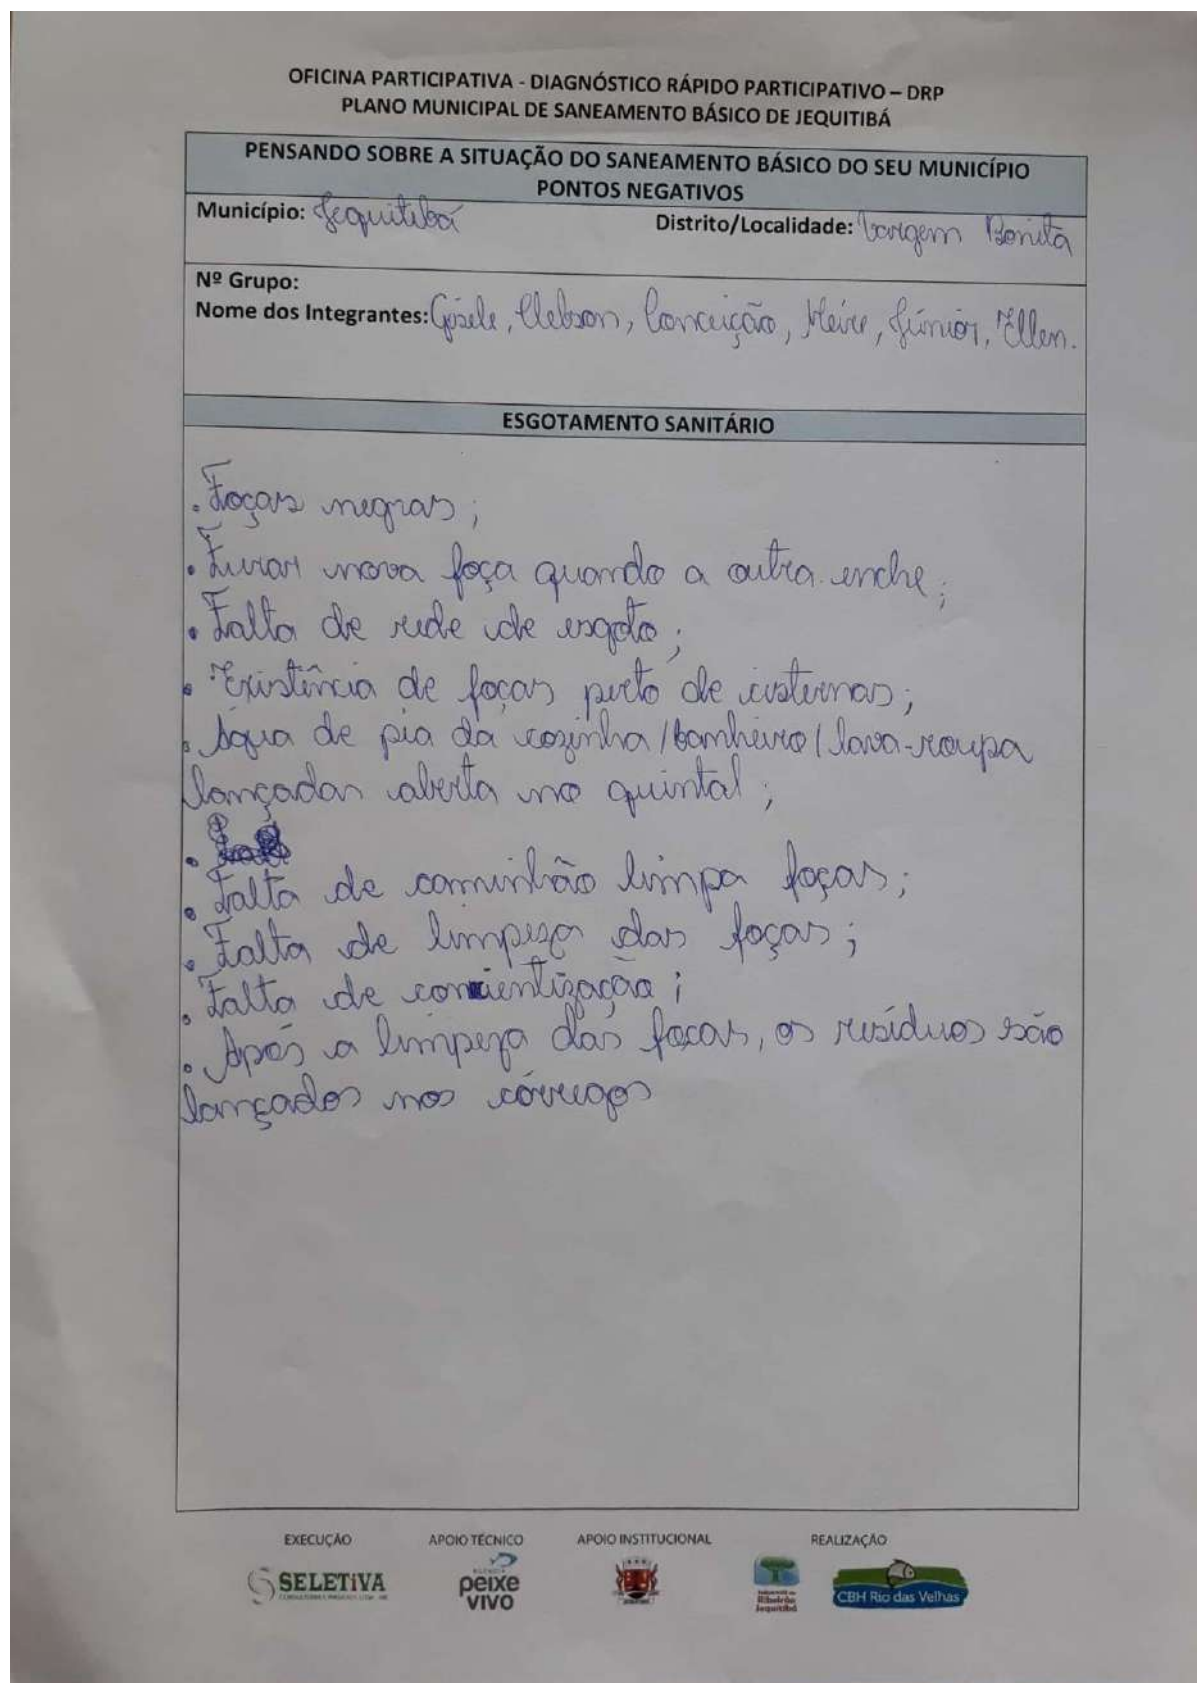 OFICINA PARTICIPATIVA - DIAGNÓSTICO RÁPIDO PARTICIPATIVO – DRP
PLANO MUNICIPAL DE SANEAMENTO BÁSICO DE JEQUITIBÁ
PENSANDO SOBRE A SITUAÇÃO DO SANEAMENTO BÁSICO DO SEU MUNICÍPIO
PONTOS NEGATIVOS
Município: Jequitibá Distrito/Localidade: Vargem Bonita
Nº Grupo:
Nome dos Integrantes: Gisele, Clebson, Conceição, Meire, Júnior, Ellen.
ESGOTAMENTO SANITÁRIO
. Foças negras;
. Furar nova foça quando a outra enche;
. Falta de rede de esgoto;
. Existência de foças perto de cisternas;
. Água de pia da cozinha/banheiro/lava-roupa
lançadas aberta no quintal;
.
. Falta de caminhão limpa foças;
. Falta de limpeza das foças;
. Falta de concientização;
. Após a limpeza das foças, os resíduos são
lançados nos córregos
EXECUÇÃO APOIO TÉCNICO APOIO INSTITUCIONAL REALIZAÇÃO
SELETIVA
peixe
vivo
Ribeirão
Jequitibá
CBH Rio das Velhas